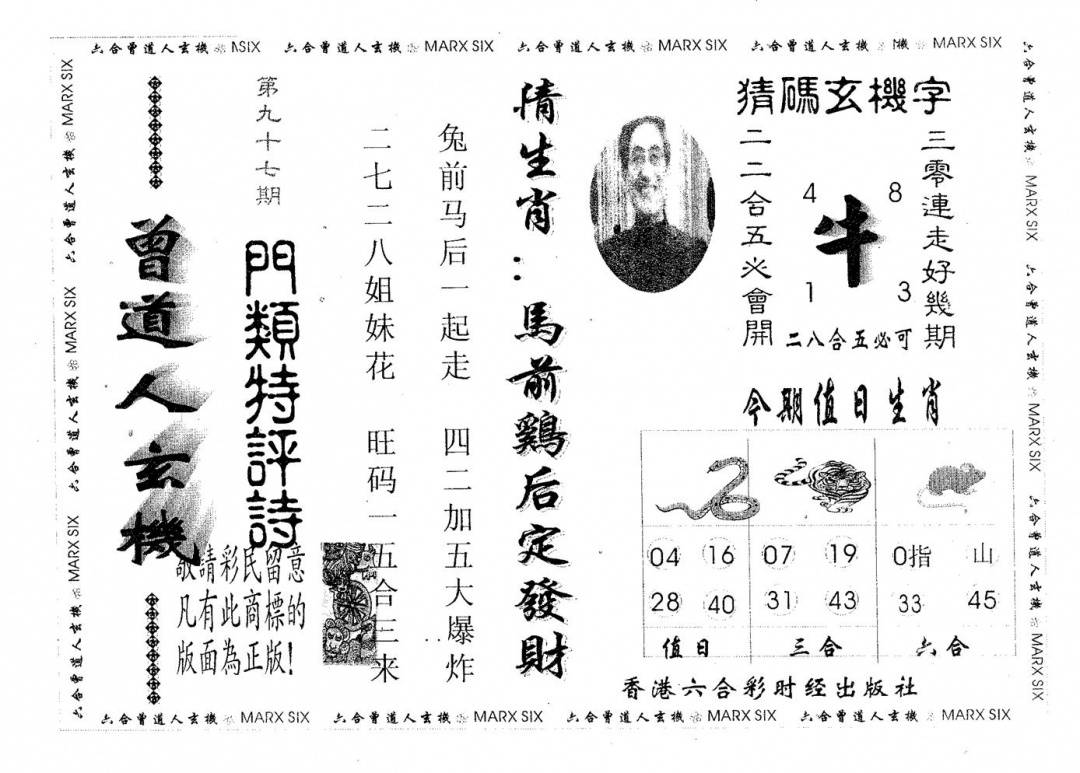 六合曾道人玄機 MARX SIX
六合曾道人玄機 MARX SIX
六合曾道人玄機 MARX SIX
猜碼玄機字
三零連走好幾期
二二合五必會開
4 8
牛
1 3
二八合五必可
今期值日生肖
04 16 07 19 0指 山
28 40 31 43 33 45
值日 三合 六合
香港六合彩时经出版社
情生肖：馬前鷄后定發財
兔前马后一起走 四二加五大爆炸
二七二八姐妹花 旺码一五合三来
第九十七期
門類特評詩
敬請彩民留意
凡有此商標的
版面為正版!
曾道人玄機
六合曾道人玄機 MARX SIX
六合曾道人玄機 MARX SIX
六合曾道人玄機 MARX SIX
六合曾道人玄機 MARX SIX
六合曾道人玄機 MARX SIX
六合曾道人玄機 MARX SIX
六合曾道人玄機 MARX SIX
六合曾道人玄機 MARX SIX
六合曾道人玄機 MARX SIX
六合曾道人玄機 MARX SIX